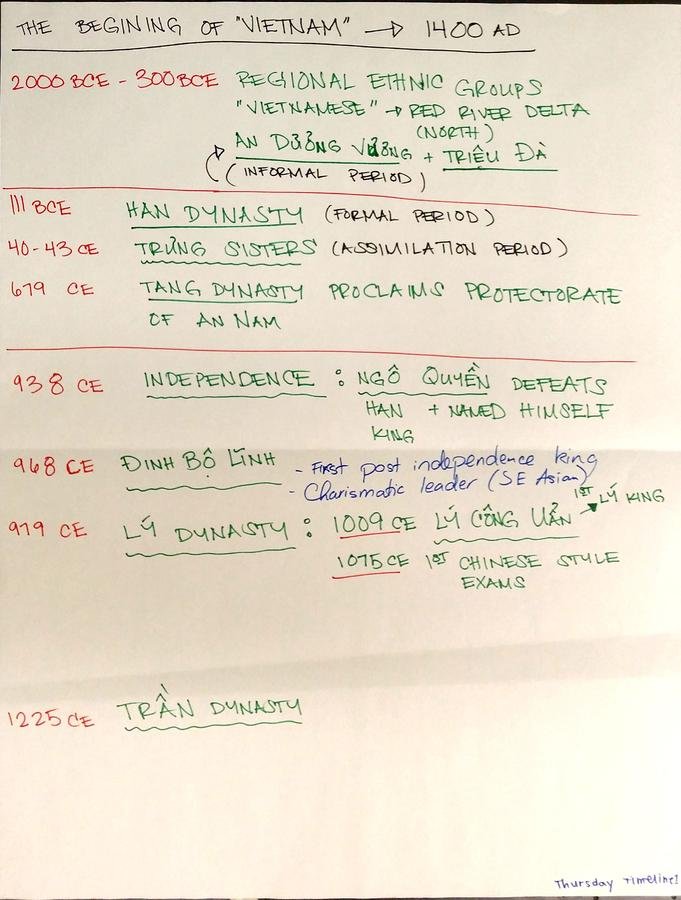 THE BEGINING OF "VIETNAM" → 1400 AD
2000 BCE - 300 BCE REGIONAL ETHNIC GROUPS
"VIETNAMESE" → RED RIVER DELTA
(NORTH)
AN DƯƠNG VƯƠNG + TRIỆU ĐÀ
(INFORMAL PERIOD)
111 BCE HAN DYNASTY (FORMAL PERIOD)
40-43 CE TRƯNG SISTERS (ASSIMILATION PERIOD)
679 CE TANG DYNASTY PROCLAIMS PROTECTORATE
OF AN NAM
938 CE INDEPENDENCE : NGÔ QUYỀN DEFEATS
HAN + NAMED HIMSELF
KING
968 CE ĐINH BỘ LĨNH - First post independence king
- Charismatic leader (SE Asian)
979 CE LÝ DYNASTY : 1009 CE LÝ CÔNG UẨN → 1ST LÝ KING
1075 CE 1ST CHINESE STYLE
EXAMS
1225 CE TRẦN DYNASTY
Thursday Timeline!